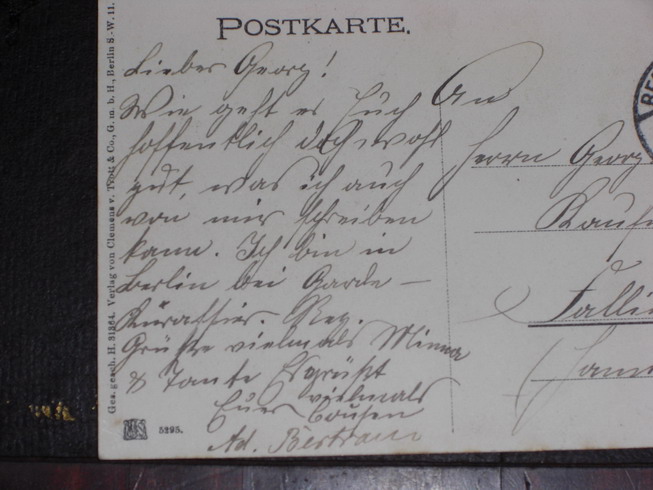 POSTKARTE.
Lieber Georg!
Wie geht es Euch
hoffentlich doch wohl
gut, was ich auch
von mir schreiben
kann. Ich bin in
Berlin bei Garde-
Kürassier. Reg.
Grüße vielmals Minna
& Tante Es grüßt
vielmals
Euer Cousin
Ad. Bertram
An
Herrn Georg
Kauf
Ges. gesch. H. 31364. Verlag von Clemens v. Trott & Co., G. m. b. H., Berlin S.-W. 11.
5295.
BE